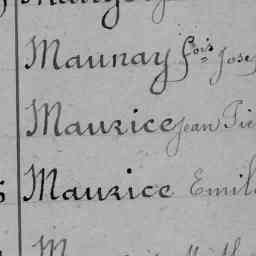 Maunay fois Jose
Maurice Jean Pie
Maurice Emil